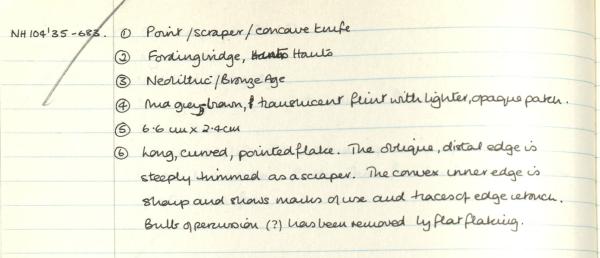 NH 104'35-683. ① Point/scraper/concave knife
② Fordingbridge, Hants Hants
③ Neolithic/Bronze Age
④ Mid grey-brown, translucent flint with lighter, opaque patch.
⑤ 6.6 cm x 2.4cm
⑥ Long, curved, pointed flake. The oblique, distal edge is
steeply trimmed as a scraper. The convex inner edge is
sharp and shows marks of use and traces of edge retouch.
Bulb of percussion (?) has been removed by flat flaking.